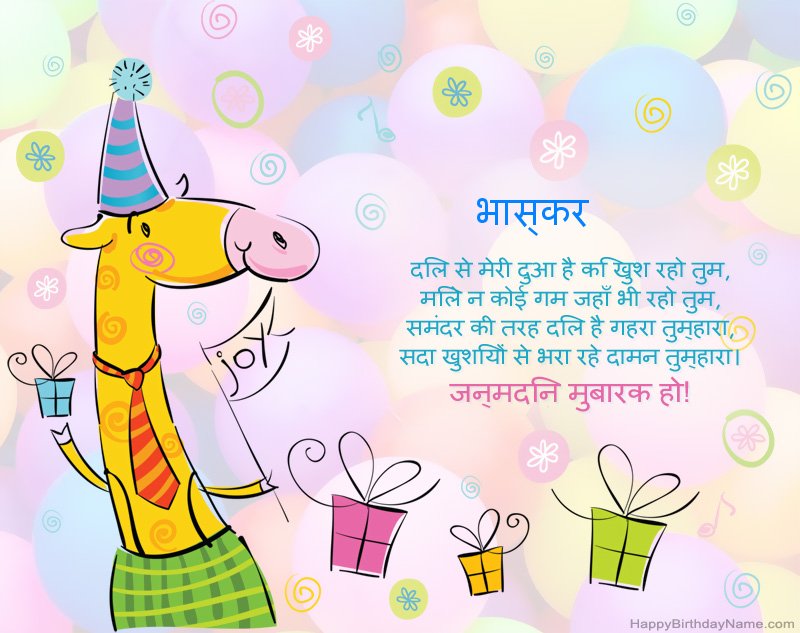 भास्कर
दलि से मेरी दुआ है क िखुश रहो तुम,
मलिे न कोई गम जहाँ भी रहो तुम,
समंदर की तरह दलि है गहरा तुम्हारा,
सदा खुशयिों से भरा रहे दामन तुम्हारा।
जन्मदनि मुबारक हो!
joy
HappyBirthdayName.com